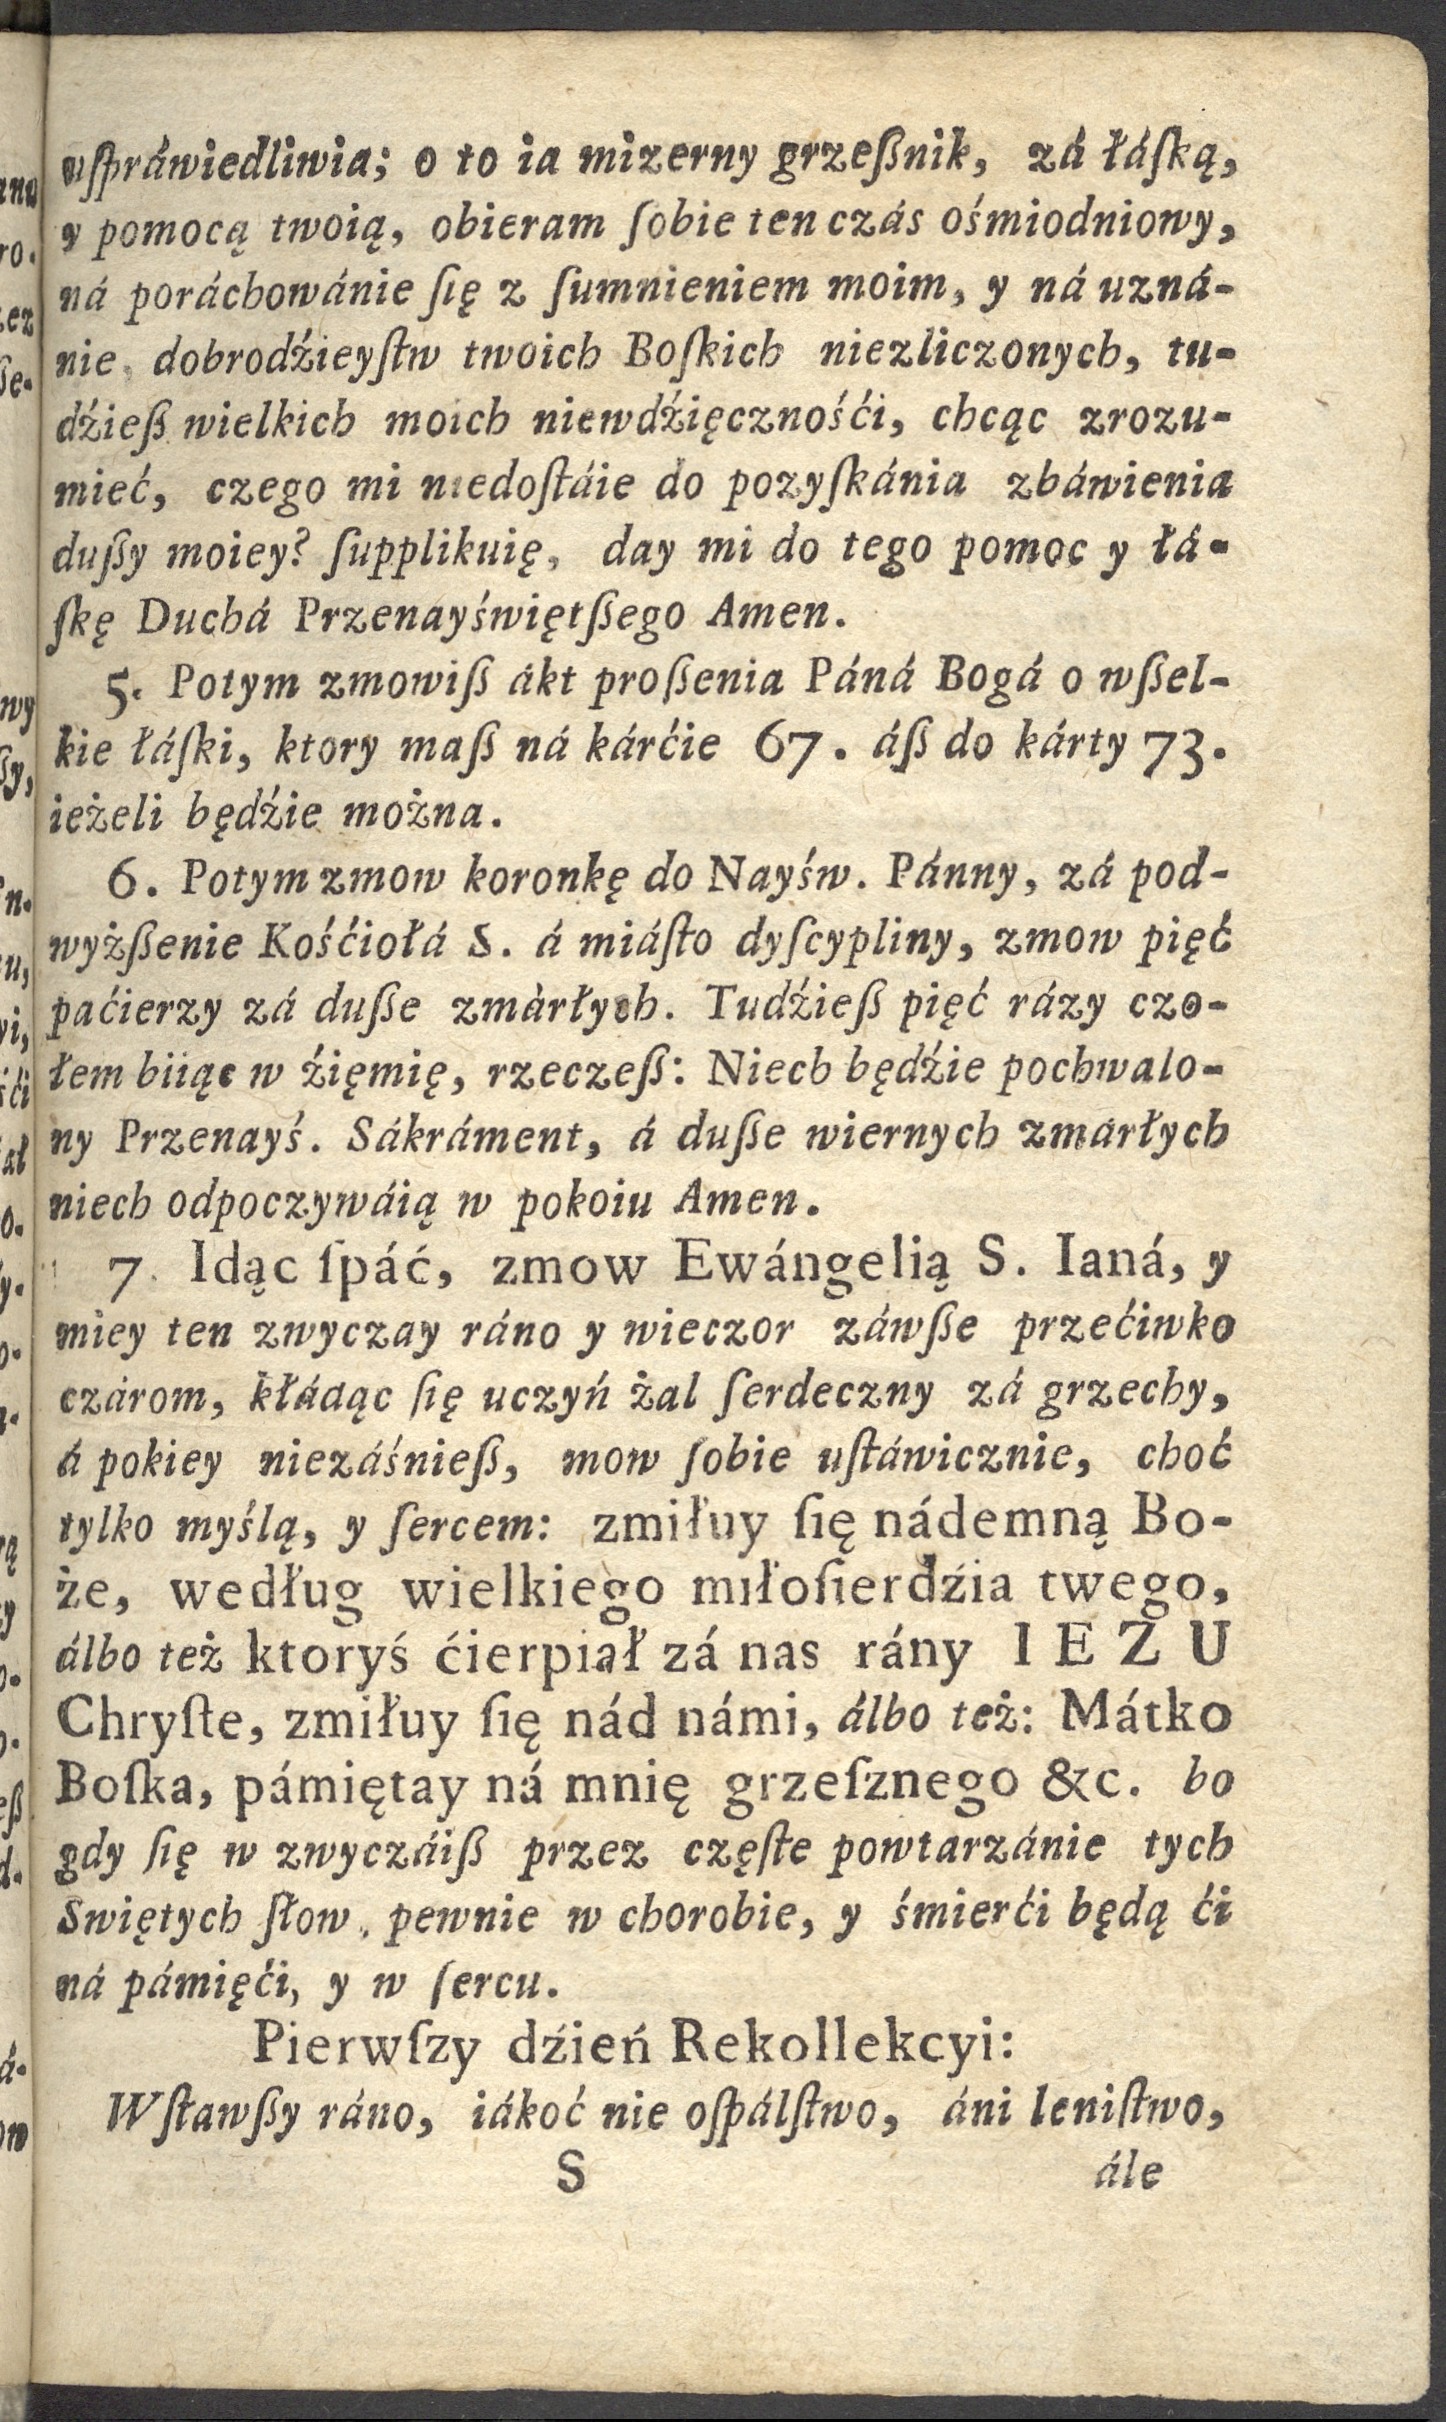 uſpráwiedliwia; o to ia mizerny grzeßnik, zá łáſką,
y pomocą twoią, obieram ſobie ten czás ośmiodniowy,
ná poráchowánie ſię z ſumnieniem moim, y ná uzná-
nie, dobrodźieyſtw twoich Boſkich niezliczonych, tu-
dźieß wielkich moich niewdźięcznośći, chcąc zrozu-
mieć, czego mi niedoſtáie do pozyſkánia zbáwienia
dußy moiey? ſupplikuię, day mi do tego pomoc y łá-
ſkę Duchá Przenayświętßego Amen.
5. Potym zmowiß ákt proßenia Páná Bogá o wßel-
kie łáſki, ktory maß ná kárćie 67. áß do kárty 73.
ieżeli będźie można.
6. Potym zmow koronkę do Nayśw. Pánny, zá pod-
wyżßenie Kośćiołá S. á miáſto dyſcypliny, zmow pięć
paćierzy zá duße zmàrłych. Tudźieß pięć rázy czo-
łem biiąc w źięmię, rzeczeß: Niech będźie pochwalo-
ny Przenayś. Sákráment, á duße wiernych zmarłych
niech odpoczywáią w pokoiu Amen.
7. Idąc ſpáć, zmow Ewángelią S. Ianá, y
miey ten zwyczay ráno y wieczor záwße przećiwko
czárom, kłádąc ſię uczyń żal ſerdeczny zá grzechy,
á pokiey niezáśnieß, mow ſobie uſtáwicznie, choć
tylko myślą, y ſercem: zmiłuy ſię nádemną Bo-
że, według wielkiego miłoſierdźia twego,
álbo też ktoryś ćierpiał zá nas rány IEZU
Chryſte, zmiłuy ſię nád námi, álbo też: Mátko
Boſka, pámiętay ná mnię grzeſznego &c. bo
gdy ſię w zwyczáiß przez częſte powtarzánie tych
Swiętych ſłow, pewnie w chorobie, y śmierći będą ći
ná pámięći, y w ſercu.
Pierwſzy dźień Rekollekcyi:
Wſtawßy ráno, iákoć nie oſpálſtwo, áni leniſtwo,
S ále